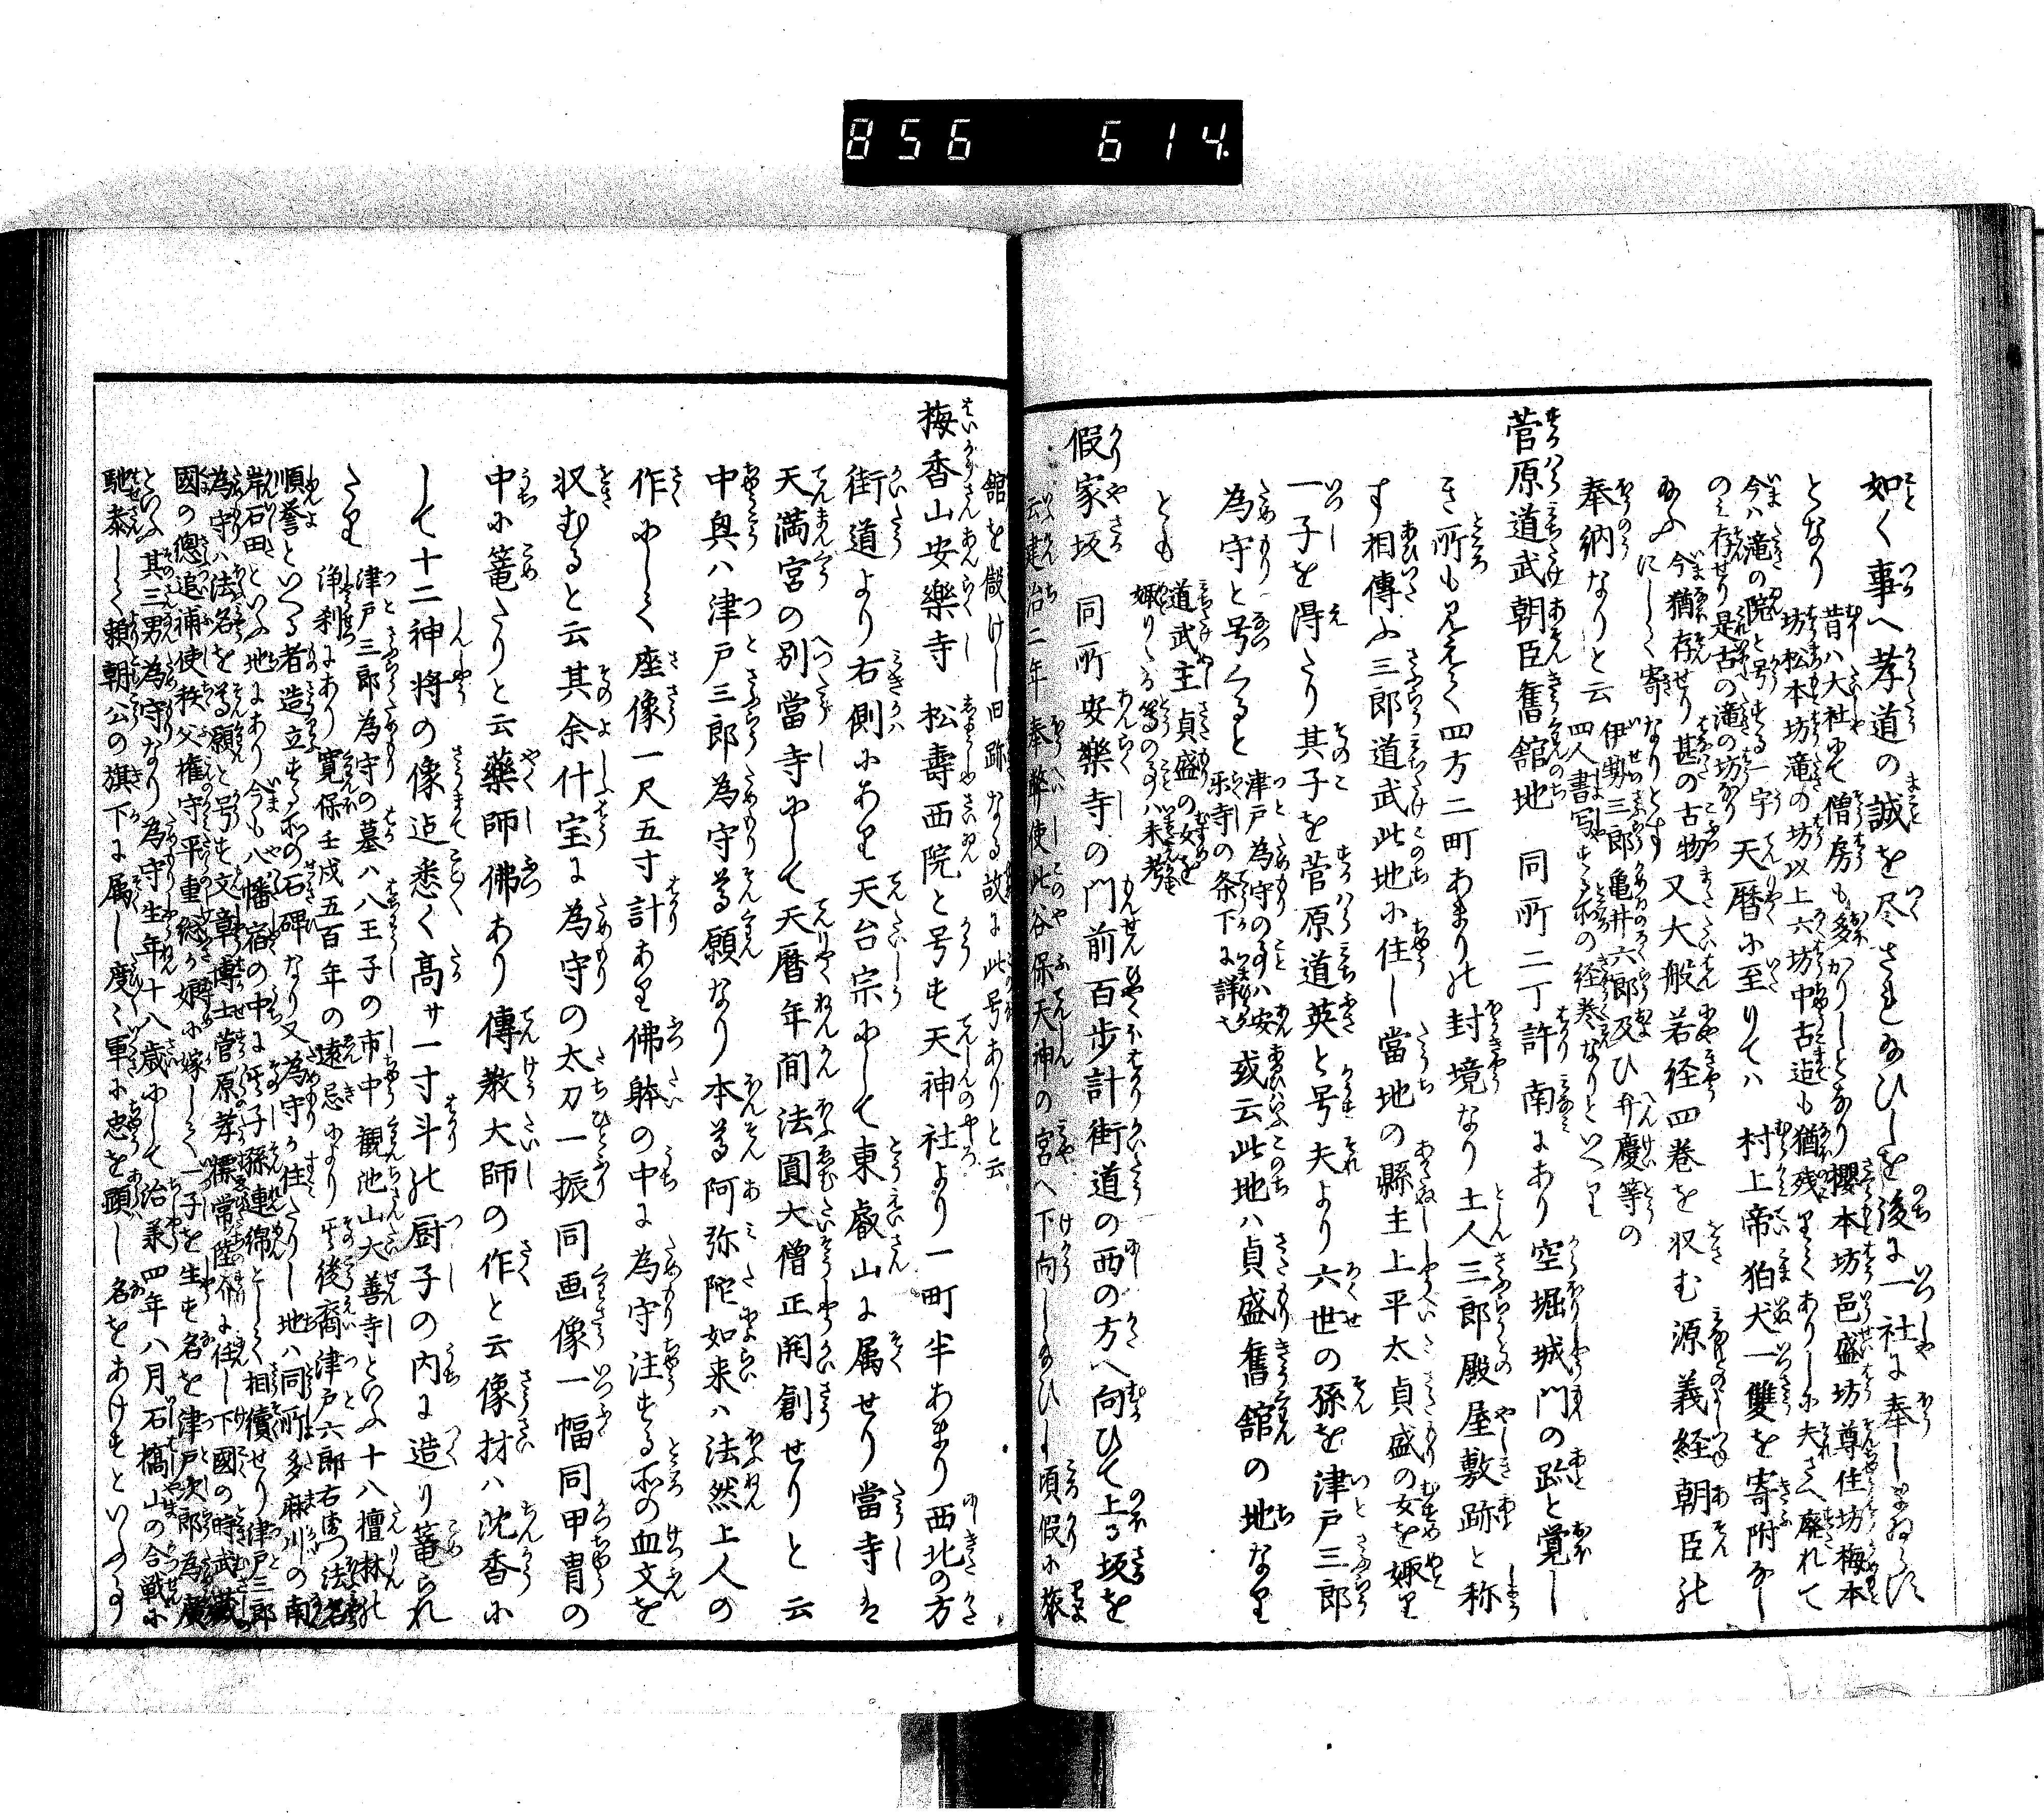 856 614
如く事へ孝道の誠を尽されたまひしを後に一社に奉しまゐらす
となり
昔ハ大社にて僧房も多かりしとなり櫻本坊邑盛坊尊住坊梅本
坊松本坊滝の坊以上六坊中古迠も猶残りてありしに夫さへ廃れて
今ハ滝の院と号する一宇
のミ存せり是古の滝の坊なり
天暦に至りてハ村上帝狛犬一雙を寄附なし
たまふ
今猶存せり甚の古物
にして寄なりとす
又大般若経四巻を収む源義経朝臣の
奉納なりと云
伊勢三郎亀井六郎及ひ弁慶等の
四人書写する所の経巻なりといへり
菅原道武朝臣舊舘地 同所二丁許南にあり空堀城門の趾と覚し
き所も見えて四方二町あまりの封境なり土人三郎殿屋敷跡と称
す相傳ふ三郎道武此地に住し當地の縣主上平太貞盛の女を娵り
一子を得たり其子を菅原道英と号夫より六世の孫を津戸三郎
為守と号くると
津戸為守のことハ安
樂寺の条下に詳也
或云此地ハ貞盛舊舘の地なり
とも
道武主貞盛の女を
娵りたる等のことハ未考
假家坂 同所安樂寺の門前百歩計街道の西の方へ向ひて上る坂を
云建治二年奉幣使此谷保天神の宮へ下向したまひし頃假に旅
舘を儲けし旧跡なる故に此号ありと云
梅香山安樂寺 松壽西院と号も天神社より一町半あまり西北の方
街道より右側にあり天台宗にして東叡山に属せり當寺は
天満宮の別當寺にして天暦年間法圓大僧正開創せりと云
中興ハ津戸三郎為守尊願なり本尊阿弥陀如来ハ法然上人の
作にして座像一尺五寸計あり佛躰の中に為守注する所の血文を
収むると云其余什宝に為守の太刀一振同画像一幅同甲冑の
中に篭たりと云藥師佛あり傳教大師の作と云像材ハ沈香に
して十二神将の像迠悉く高サ一寸斗の厨子の内に造り篭られ
たり
津戸三郎為守の墓ハ八王子の市中観池山大善寺といふ十八檀林の
浄刹にあり寛保壬戌五百年の遠忌により其後裔津戸六郎右衛門法名
順誉といへる者造立する所の石碑なり又為守か住たりし地ハ同所多麻川の南
岸石田といふ地にあり今も八幡宿の中に其子孫連綿として相續せり津戸三郎
為守ハ法名を尊願と号も文章博士菅原孝標常陸介に任し下國の時武藏
國の惣追補使秩父権守平重綱か娘に嫁して一子を生も名を津戸次郎為廣
といふ其三男為守なり為守生年十八歳にして治承四年八月石橋山の合戦に
馳参して頼朝公の旗下に属し度々軍に忠を顕し名をあけすといふことなし